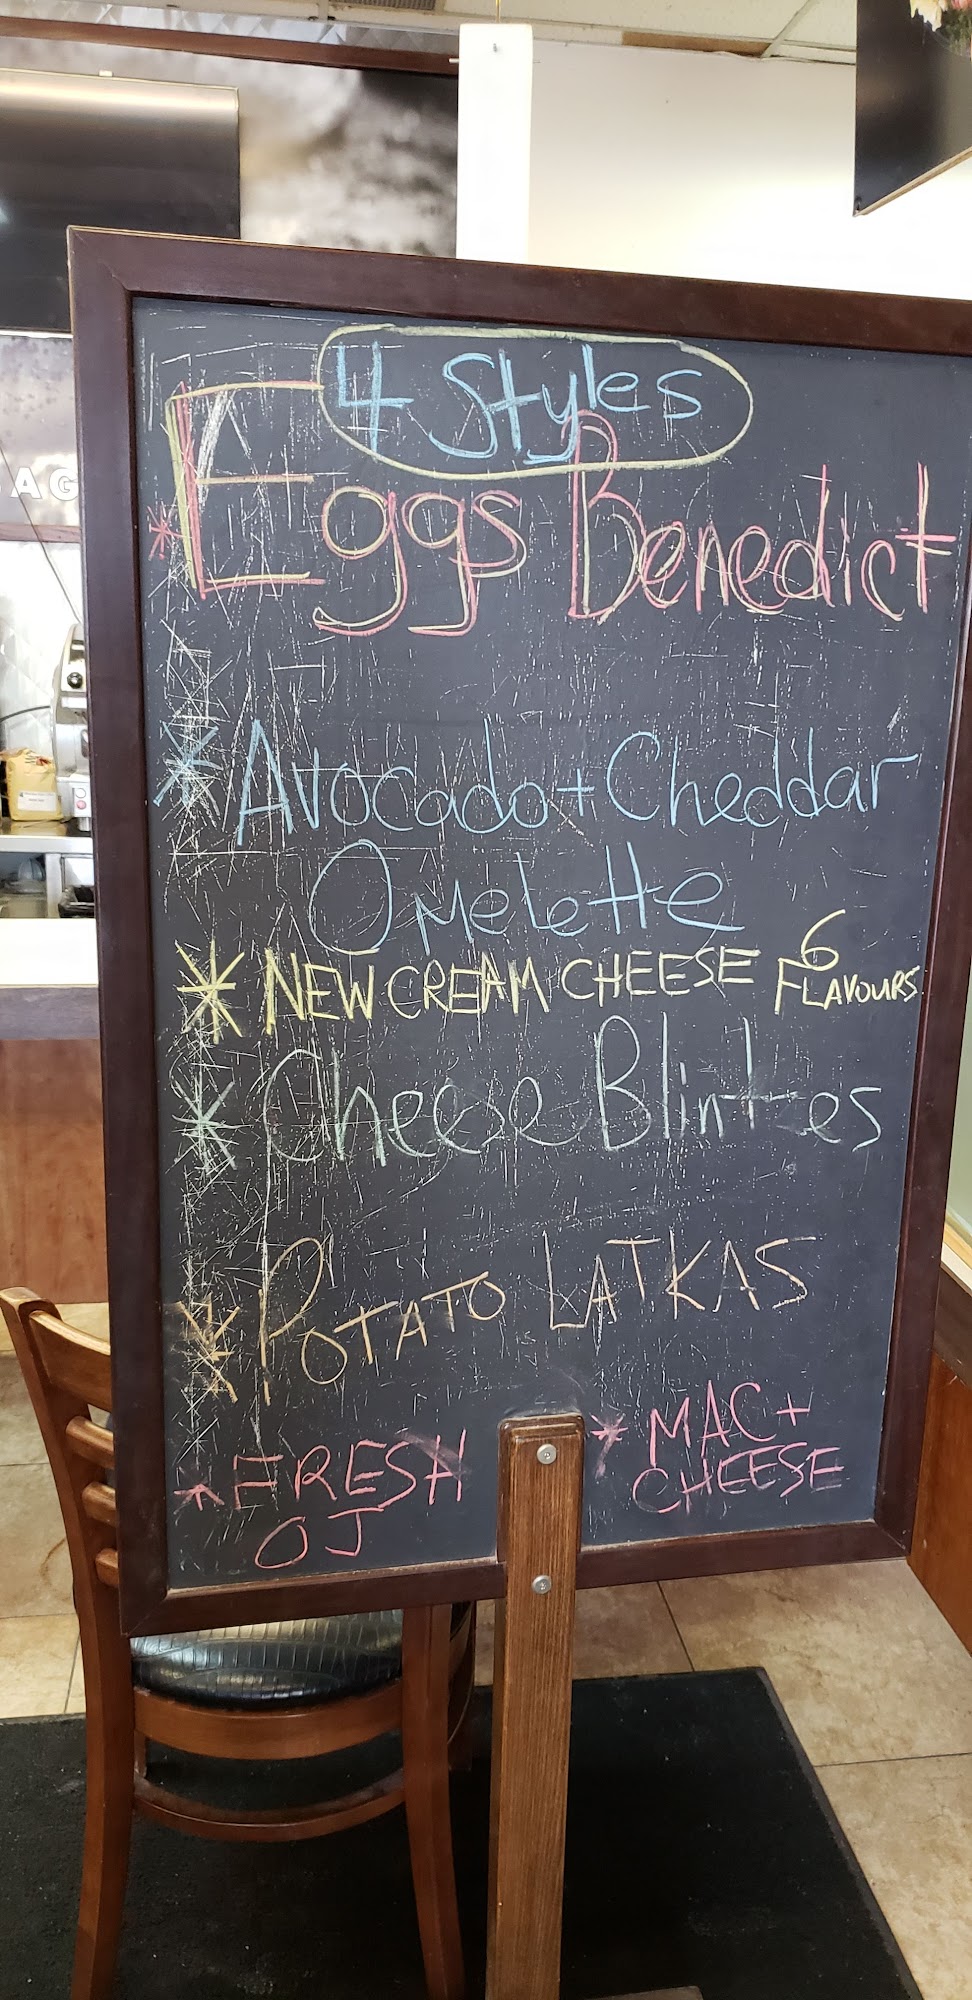 4 Styles
* Eggs Benedict
* Avocado + Cheddar
Omelette
* NEW CREAM CHEESE 6 FLAVOURS
* Cheese Blintes
* POTATO LATKAS
* FRESH
OJ
* MAC +
CHEESE